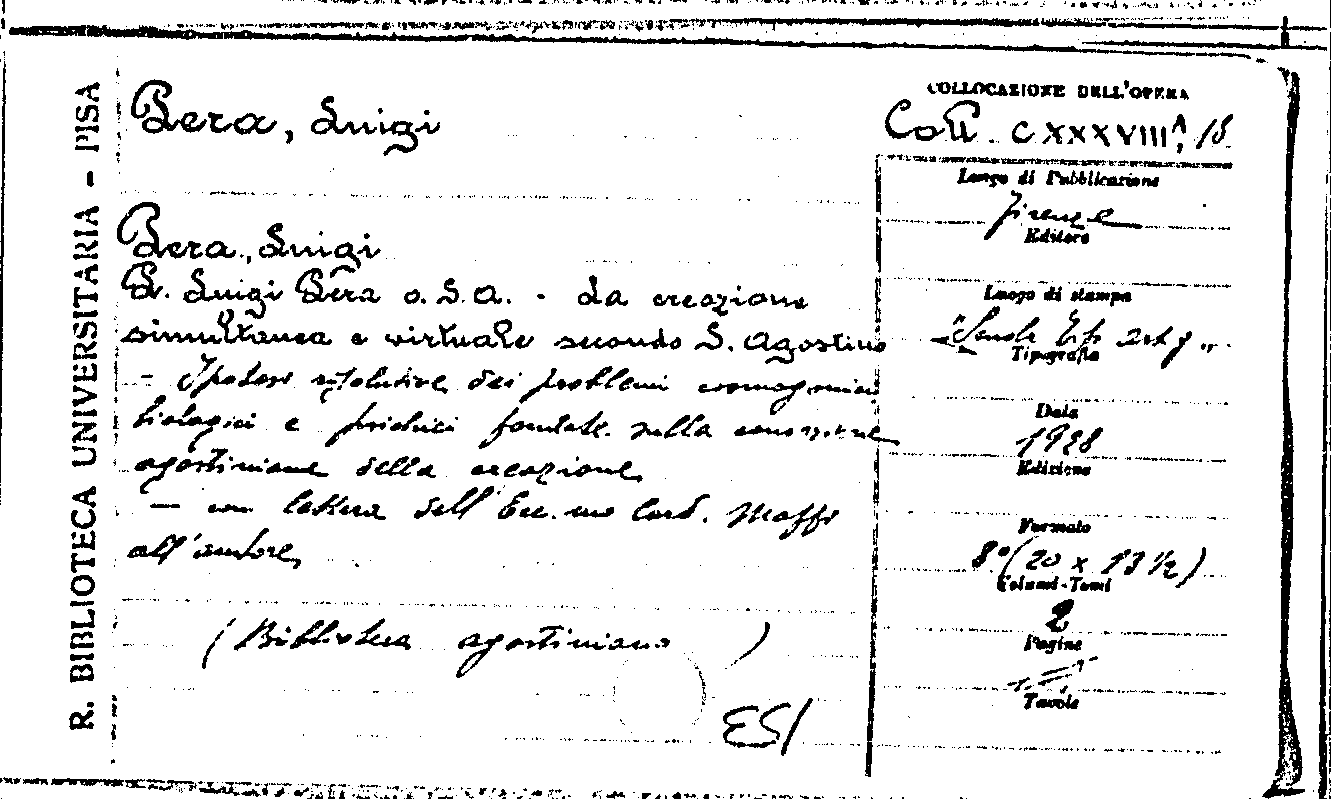 R. BIBLIOTECA UNIVERSITARIA - PISA
Pera, Luigi
Pera, Luigi
P. Luigi Pera O.S.A. - La creazione
simultanea e virtuale secondo S. Agostino
- Ipotesi risolutive dei problemi cosmogonici
biologici e psichici fondate sulla concezione
agostiniana della creazione
- con lettera dell'Em.mo Card. Maffi
all'autore
(Biblioteca agostiniana)
ESI
COLLOCAZIONE DELL'OPERA
Coll. CXXXVIII A, 18
Luogo di Pubblicazione
Firenze
Editore
Luogo di stampa
"Scuola Tip.
Tipografia
Data
1928
Edizione
Formato
8° (20 x 13 ½)
Volumi-Tomi
2
Pagine
Tavole